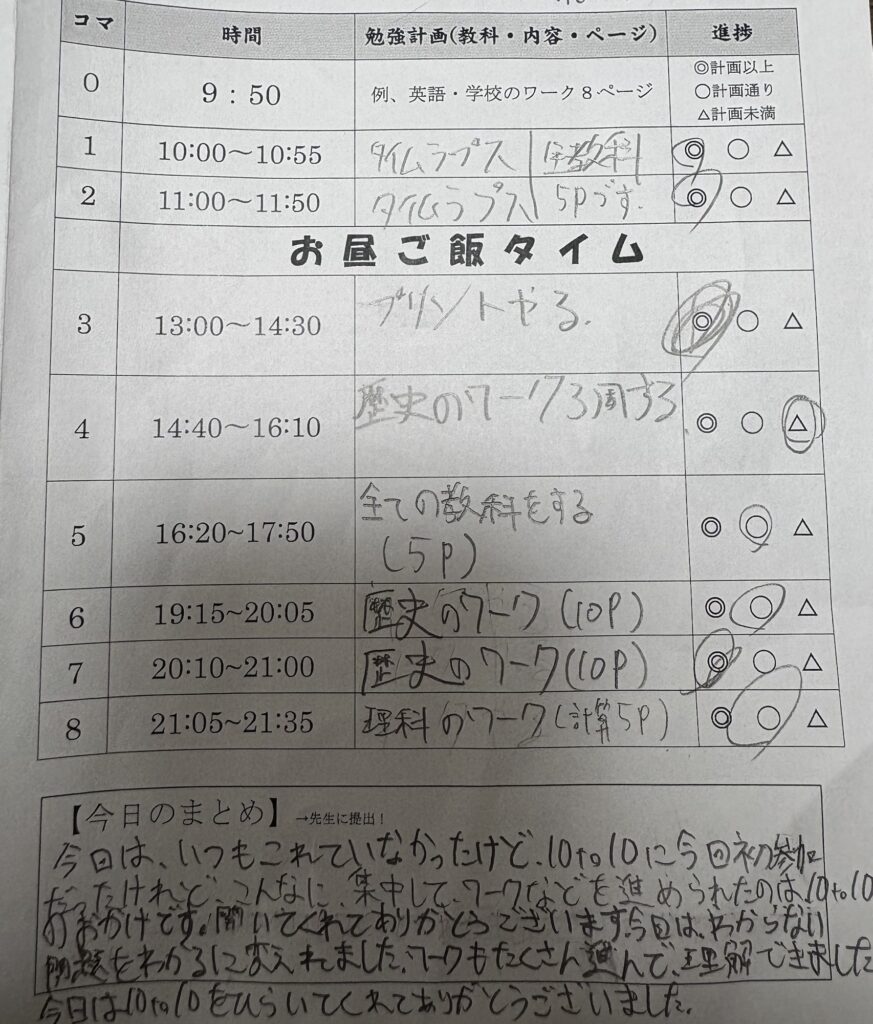 コマ 時間 勉強計画(教科・内容・ページ) 進捗
0 9：50 例、英語・学校のワーク８ページ ◎計画以上
○計画通り
△計画未満
1 10:00～10:55 タイムラプス 全教科 ◎ ○ △
2 11:00～11:50 タイムラプス 5Pです. ◎ ○ △
お昼ご飯タイム
3 13:00～14:30 プリントやる. ◎ ○ △
4 14:40～16:10 歴史のワーク3周する ◎ ○ △
5 16:20~17:50 全ての教科をする
(5p) ◎ ○ △
6 19:15~20:05 歴史のワーク(10P) ◎ ○ △
7 20:10~21:00 歴史のワーク(10P) ◎ ○ △
8 21:05~21:35 理科のワーク(計算5P) ◎ ○ △
【今日のまとめ】→先生に提出！
今日は、いつもこれていなかったけど、10to10に今回初参加
だったけれど、こんなに、集中して、ワークなどを進められたのは10to10
のおかけです。開いてくれてありがとうございます。今日は、わからない
問題をわかるに変えれました、ワークもたくさん進んで、理解できました
今日は10to10をひらいてくれてありがとうございました.